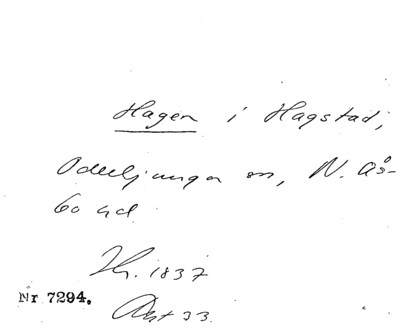 Hagen i Hagstad,
Oderljunga sn, N. Ås-
bo hd.
Hr. 1837
Nr 7294.
Avst 33.